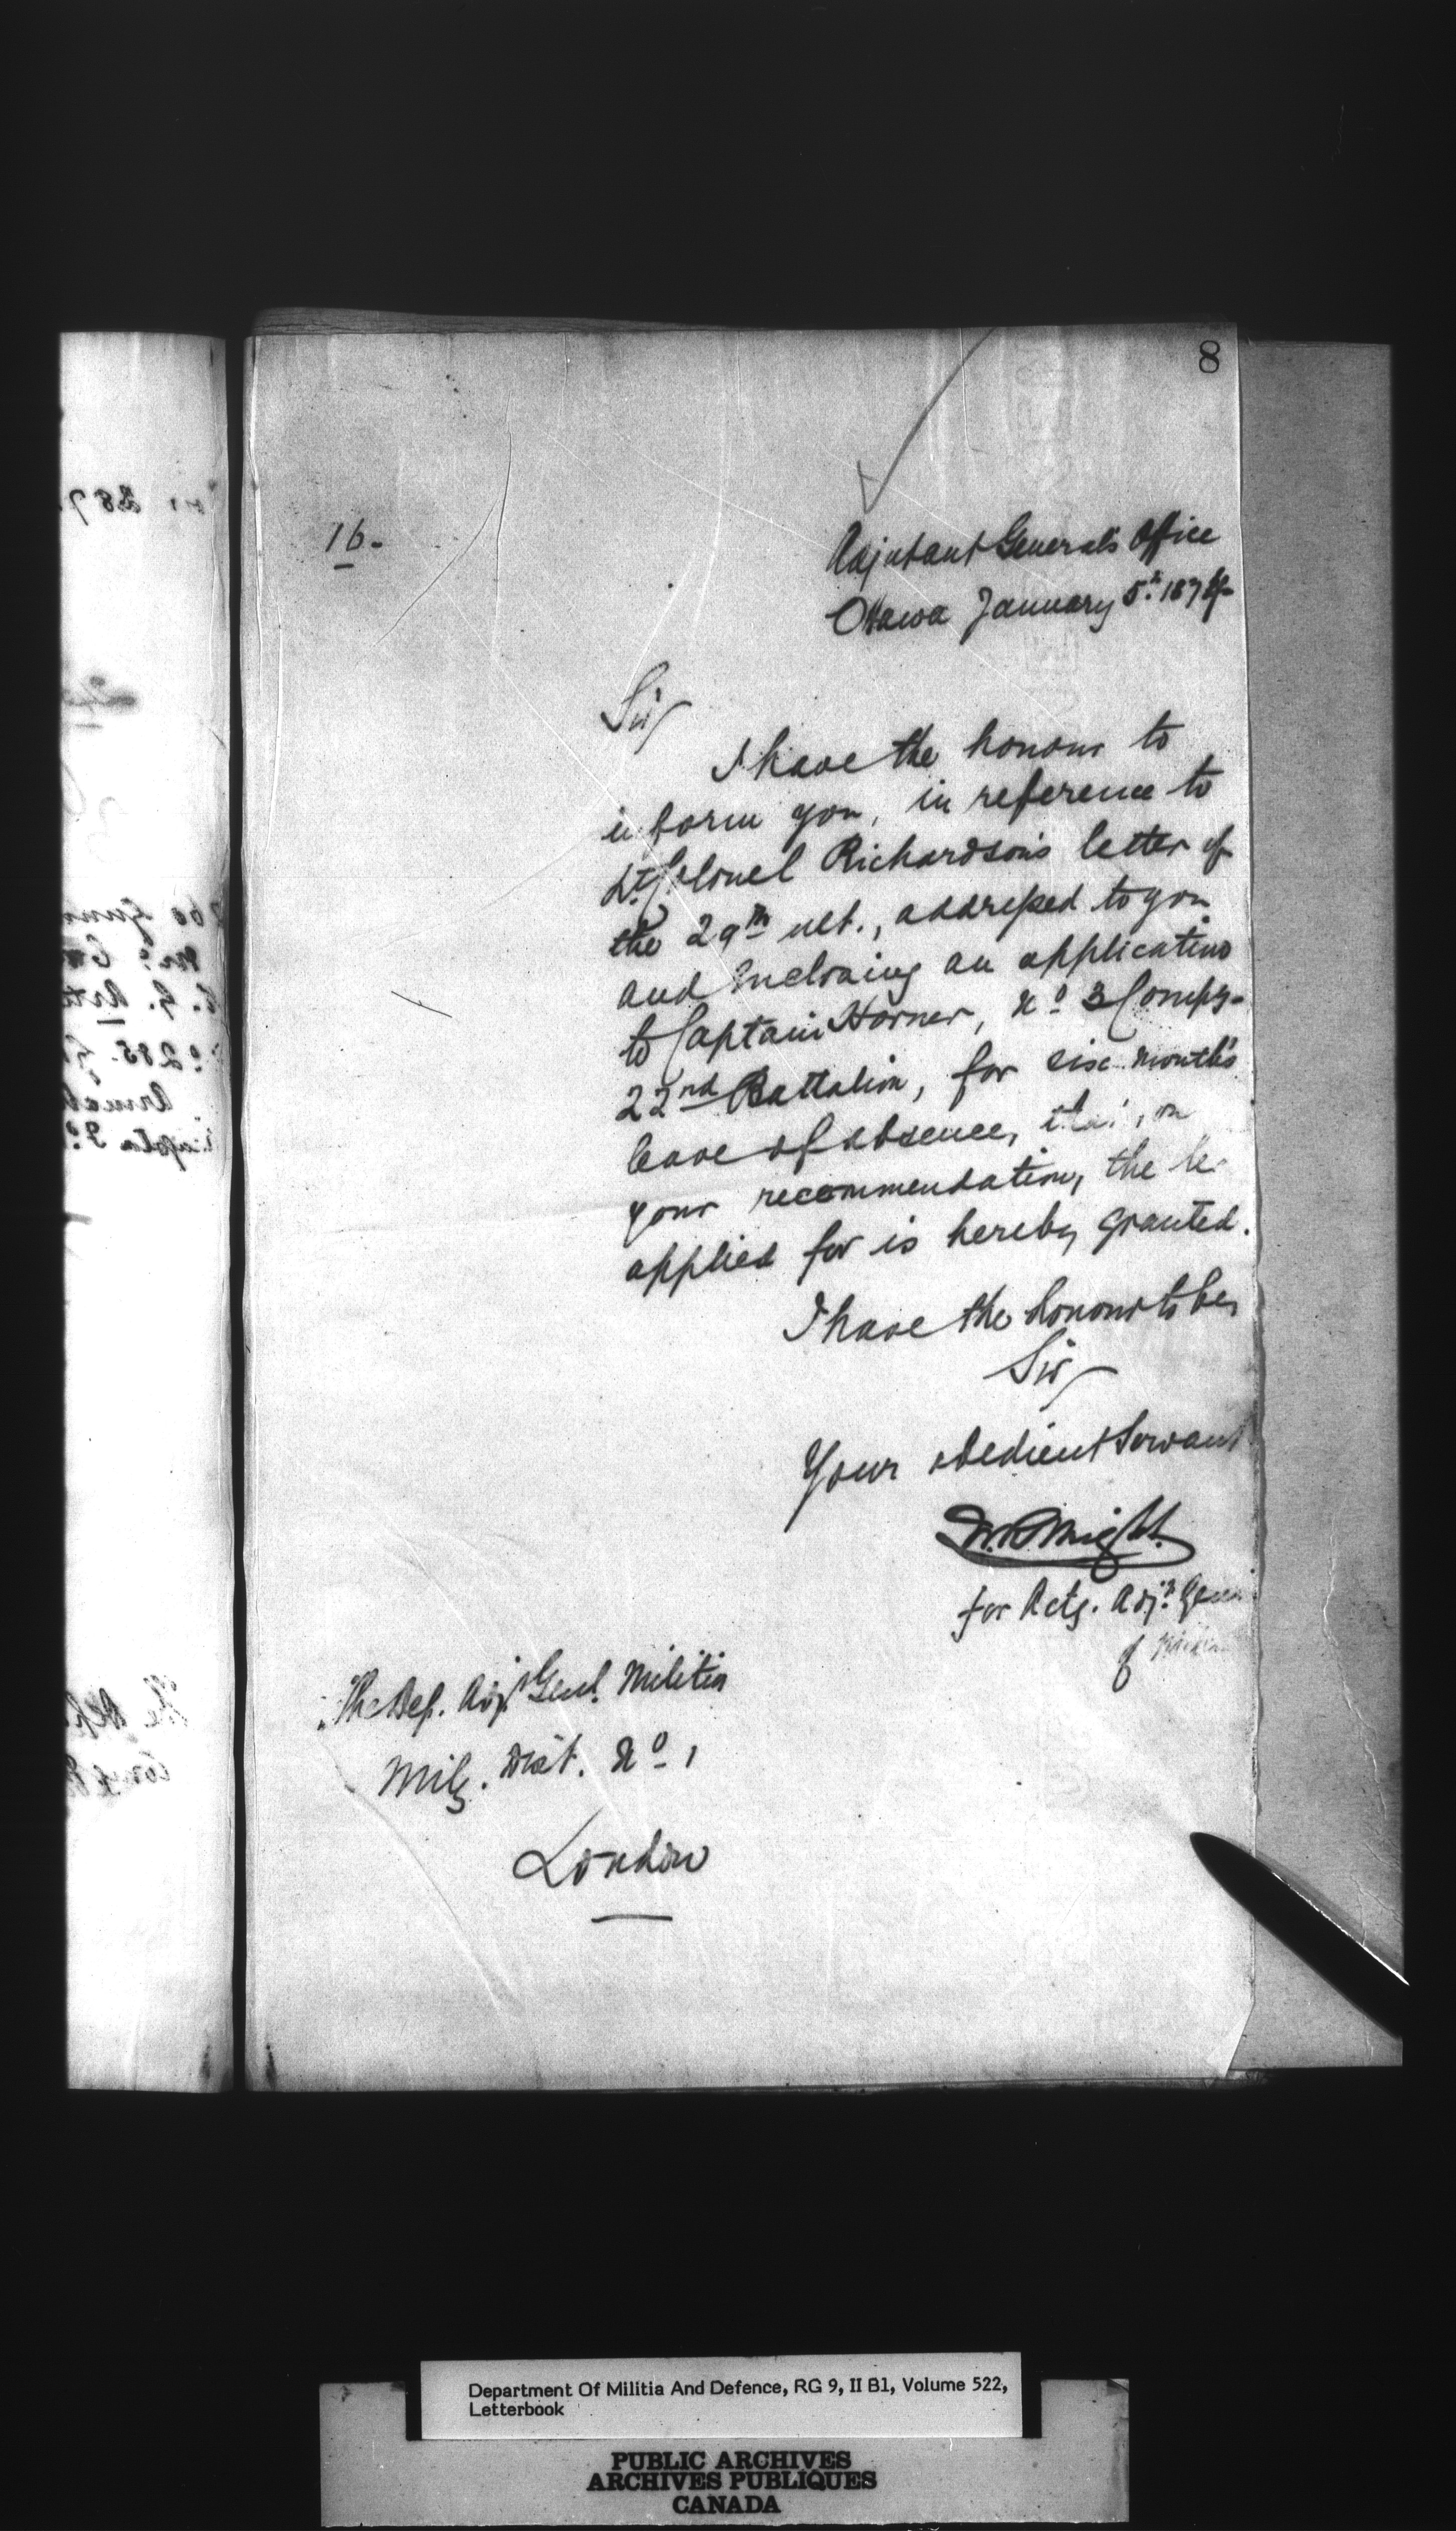 8
16.
Adjutant General's Office
Ottawa January 5th 1874
Sir
I have the honour to
inform you, in reference to
Lt. Colonel Richardson's letter of
the 29th ult., addressed to you
and enclosing an application
to Captain Horner, No 3 Compy.
22nd Battalion, for six months
leave of absence, that, on
your recommendation, the le
applied for is hereby granted.
I have the honour to be,
Sir
Your obedient Servant
for Actg. Adjt. Genl
of
The Dep. Adjt Genl. Militia
Mily. Dist. No 1
London
Department Of Militia And Defence, RG 9, II B1, Volume 522,
Letterbook
PUBLIC ARCHIVES
ARCHIVES PUBLIQUES
CANADA